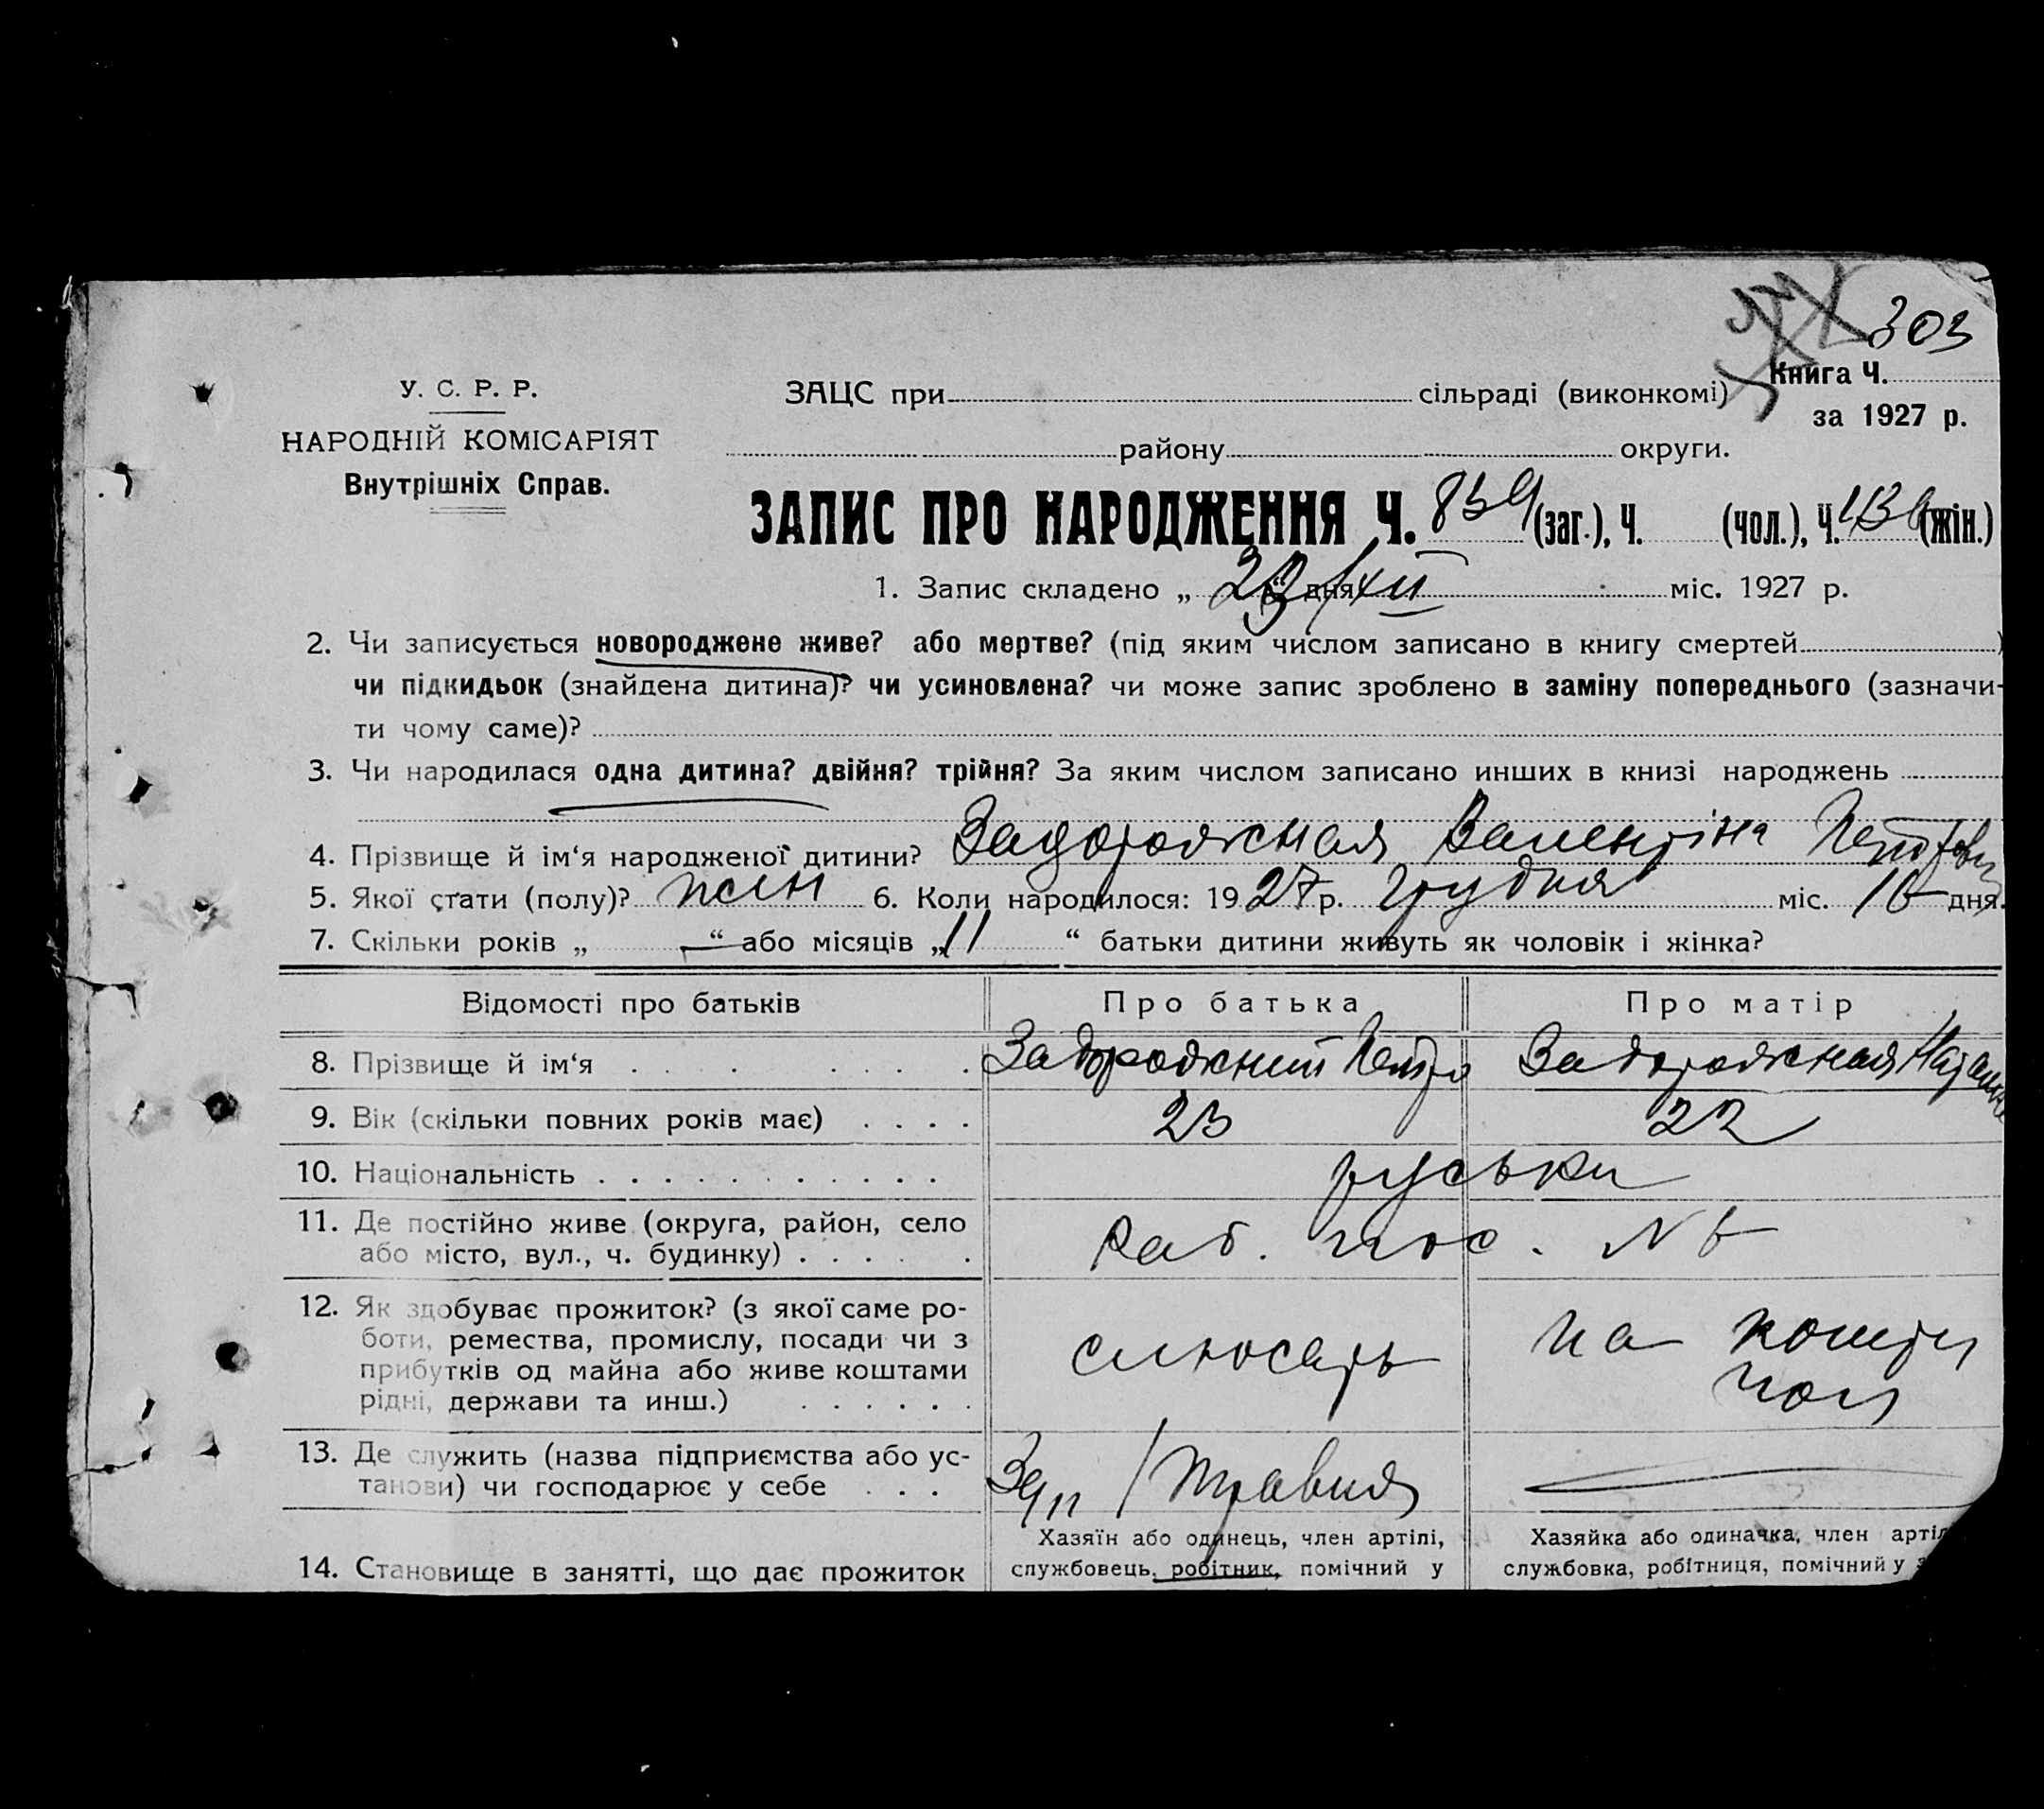 303
У. С. Р. Р.
НАРОДНІЙ КОМІСАРІЯТ
Внутрішніх Справ.
ЗАЦС при сільраді (виконкомі)
Книга Ч.
за 1927 р.
району округи.
ЗАПИС ПРО НАРОДЖЕННЯ Ч. 859 (заг.), Ч. (чол.), Ч. (жін.)
1. Запис складено „ 23 “ дня XII міс. 1927 р.
2. Чи записується новороджене живе? або мертве? (під яким числом записано в книгу смертей )
чи підкидьок (знайдена дитина)? чи усиновлена? чи може запис зроблено в заміну попереднього (зазначи-
ти чому саме)?
3. Чи народилася одна дитина? двійня? трійня? За яким числом записано инших в книзі народжень
4. Прізвище й ім‘я народженої дитини? Задорожная Валентіна
5. Якої стати (полу)? жін 6. Коли народилося: 1927 р. грудня міс. дня.
7. Скільки років „ — “ або місяців „ 11 “ батьки дитини живуть як чоловік і жінка?
Відомості про батьків Про батька Про матір
8. Прізвище й ім‘я Задорожний Петро Задорожная
9. Вік (скільки повних років має) 23 22
10. Національність руськи
11. Де постійно живе (округа, район, село
або місто, вул., ч. будинку) Раб. пос. №
12. Як здобуває прожиток? (з якої саме ро-
боти, ремества, промислу, посади чи з
прибутків од майна або живе коштами
рідні, держави та инш.) слюсарь на кошти
чол
13. Де служить (назва підприємства або ус-
танови) чи господарює у себе 1 Травня
14. Становище в занятті, що дає прожиток
Хазяїн або одинець, член артілі,
службовець, робітник, помічний у
Хазяйка або одиначка, член
службовка, робітниця, помічний у